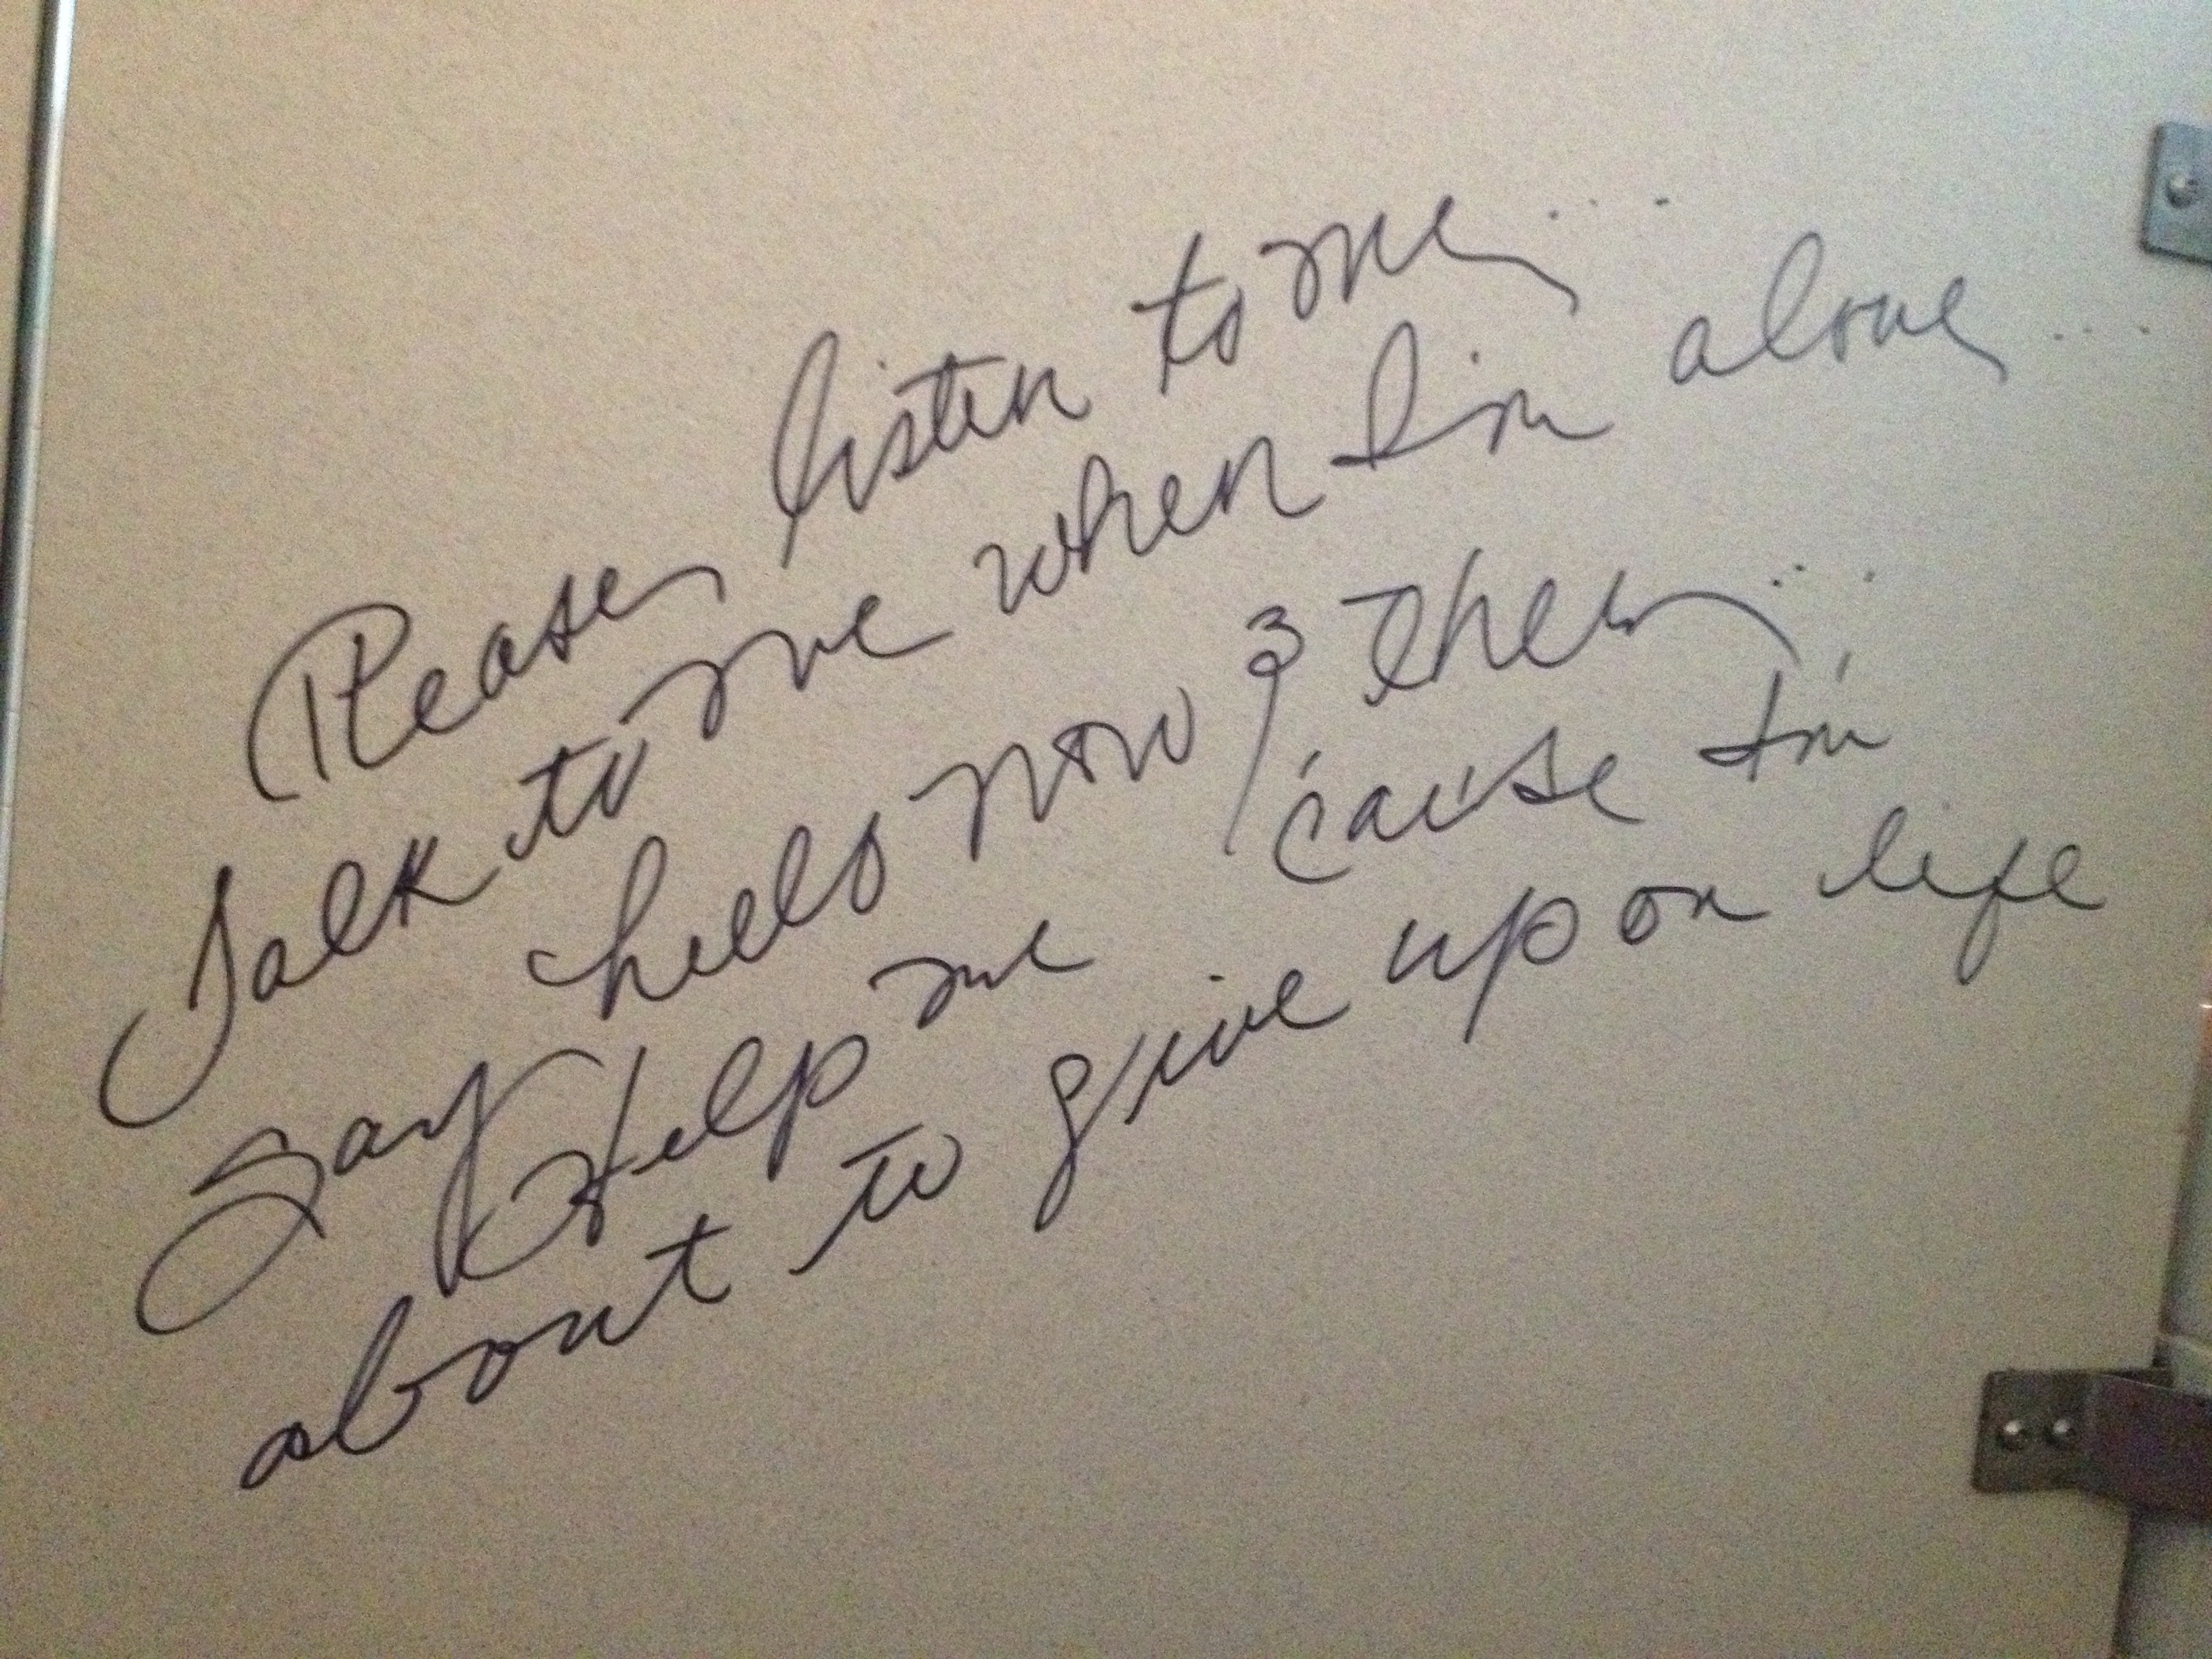 Please listen to me....
Talk to me when I'm alone....
Say hello now & then....
Help me 'cause I'm
about to give up on life